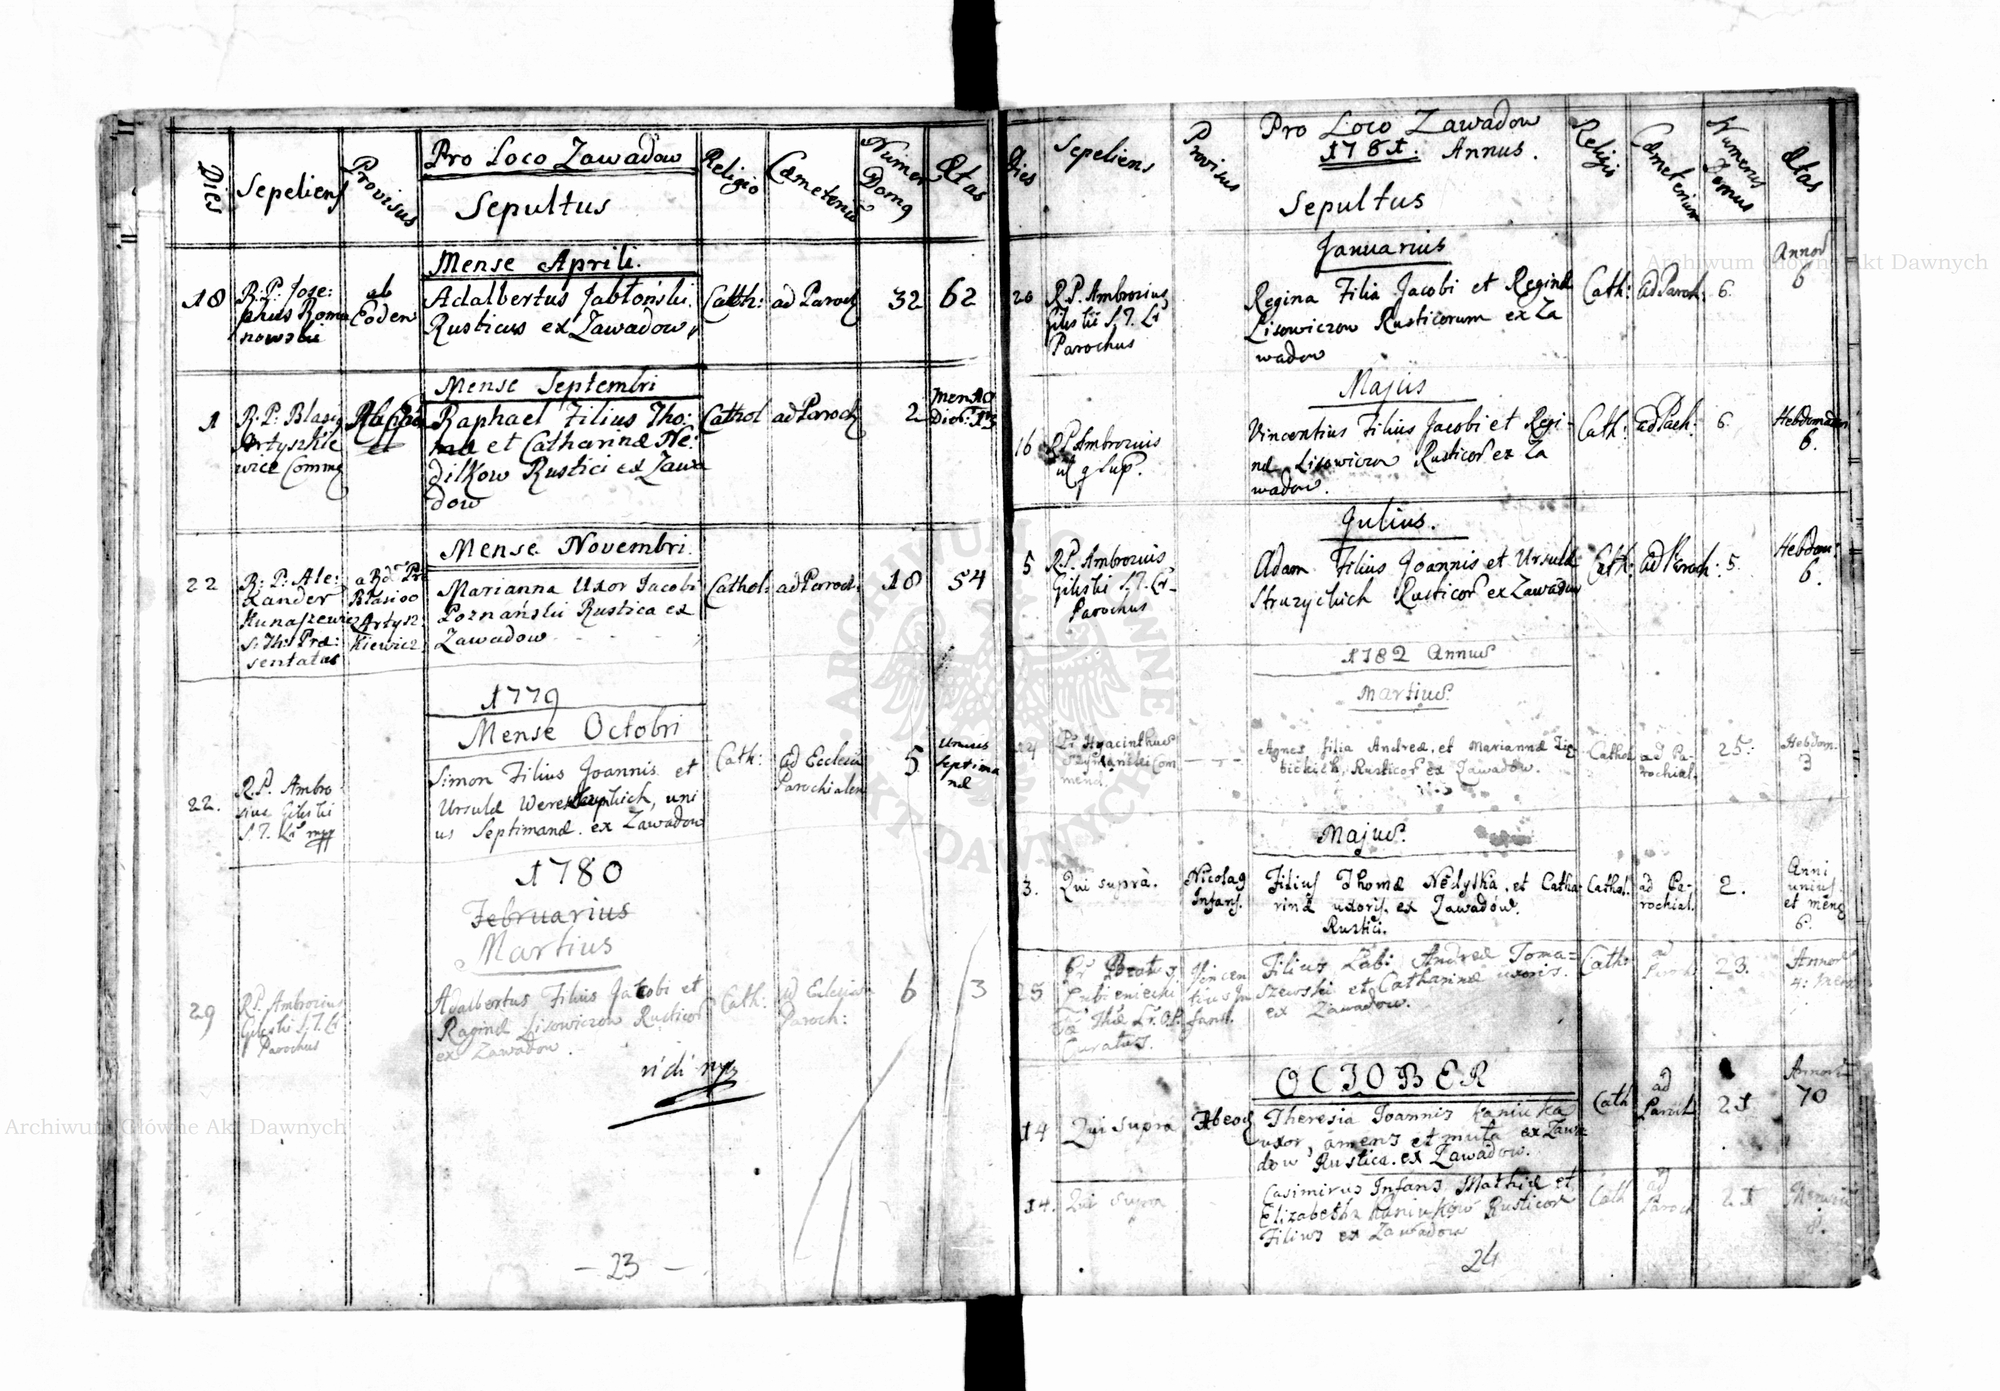 Dies
Sepeliens
Provisus
Pro Loco Zawadow
Sepultus
Religio
Cæmeteriũ
Numer Domq
Ætas
Mense Aprili.
18
R: P: Jose:
phus Roma
nowski
ab
Eodem
Adalbertus Jabłoński
Rusticus ex Zawadow
Cath:
ad Paroch
32
62
Mense Septembri
1
R: P: Blasiq
Artyszkie
wicz Comm
Raphael Filius Tho:
mæ et Catharinæ Ne:
dilkow Rustici ex Zawa
dow
Cathol
ad Paroch
2
Mense Novembri
22
R: P: Ale:
xander
Kunaszewicz
S: Th: Præ:
sentatus
a Rdo Pre
Blasioo
Artysz
kiewicz
Marianna Uxor Jacobi
Poznański Rustica ex
Zawadow
Cathol:
ad Paroch:
18
54
1779
Mense Octobri
22.
R.P. Ambro
sius Gileski
S. T. Lr mpp
Simon Filius Joannis et
Ursulæ
uni
us Septimanæ. ex Zawadow
Cath:
ad Ecclesia
Parochialem
5
unius
septima
næ
1780
Februarius
Martius
29
R.P. Ambrosius
Gileski S. T. Lr
Parochus
Adalbertus Filius Jacobi et
Raginæ Lisowiczow Rusticor
ex Zawadow.
Cath:
ad Eclesia
Paroch:
6
3
vidi mpp
- 23 -
Dies
Sepeliens
Provisus
Pro Loco Zawadow
1781. Annus.
Sepultus
Religio
Cæmeterium
Numerus Domus
Ætas
Januarius
20
R.P. Ambrosius
Gileski S. T. Lr
Parochus
Regina Filia Jacobi et Reginæ
Lisowiczow Rusticorum ex Za
wadow
Cath:
ad Paroch:
6.
Annor
6
Majus
16
R.P. Ambrosius
ut supr.
Vincentius Filius Jacobi et Regi-
næ Lisowiczow Rusticor ex Za
wadow.
Cath:
ad Pach:
6
Hebdomadam
6.
Julius.
5
R.P. Ambrosius
Gileski S. T. Lr
Parochus
Adam Filius Joannis et Ursulæ
Struzyckich Rusticor ex Zawadow
Cath:
ad Paroch:
5.
Hebdom:
6.
1782 Annus
Martius
Pr Hyacinthus
Szymanski Com
mend.
Agnes filia Andreæ, et Mariannæ
Rusticor ex Zawadow.
Cathol
ad Pa-
rochial.
25.
Hebdom.
3
Majus.
3.
Qui suprà.
Nicolaq
Infans.
Filius Thomæ Nedylka, et Catha
rinæ uxoris, ex Zawadów.
Rustici.
Cathol.
ad Pa-
rochial.
2.
Anni
unius
et mens
6.
25
Vincen
tius In
fans.
Filius Andreæ Toma=
szewski et Catharinæ uxoris.
ex Zawadow.
Cath:
ad
Paroch
23.
Annor
4.
OCTOBER
14
Qui supra
Theresia Joannis Kaniuka
uxor, amens et muta ex Zawa
dow Rustica. ex Zawadow.
Cath
ad
Paroch
21
Annor
70
14.
Qui supra
Casimirus Infans Mathiæ et
Elizabethæ Kaniuków Rusticor
Filius ex Zawadow
Cath
ad
Paroch
21
8.
24
Archiwum Główne Akt Dawnych
Archiwum Główne Akt Dawnych
ARCHIWUM GŁÓWNE AKT DAWNYCH